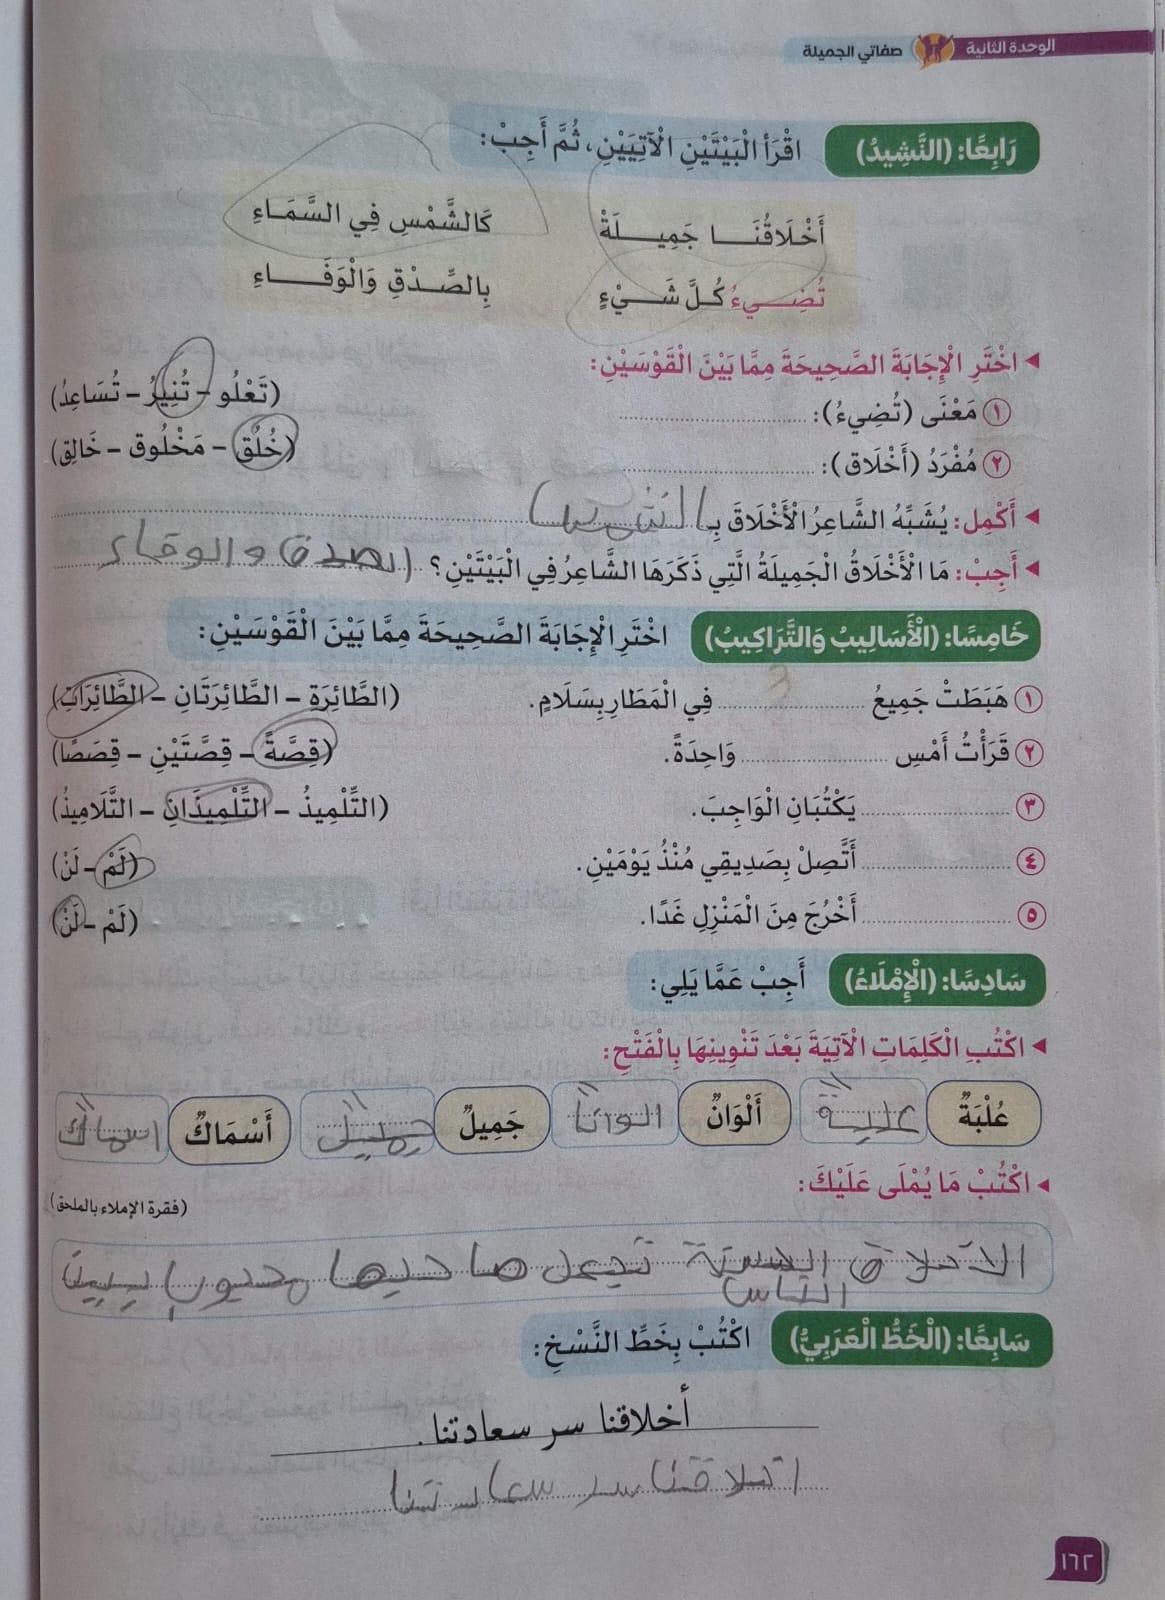 الوحدة الثانية صفاتي الجميلة
رَابِعًا: (النَّشِيدُ) اقْرَأ الْبَيْتَيْنِ الْآتِيَيْنِ، ثُمَّ أَجِبْ:
أَخْلَاقُنَا جَمِيلَةْ كَالشَّمْسِ فِي السَّمَاءِ
تُضِيءُ كُلَّ شَيْءٍ بِالصِّدْقِ وَالْوَفَاءِ
◂ اخْتَرِ الْإِجَابَةَ الصَّحِيحَةَ مِمَّا بَيْنَ الْقَوْسَيْنِ:
١ مَعْنَى (تُضِيءُ): .................... (تَعْلُو - تُنِيرُ - تُسَاعِدُ)
٢ مُفْرَدُ (أَخْلَاق): .................... (خُلُق - مَخْلُوق - خَالِق)
◂ أَكْمِل: يُشَبِّهُ الشَّاعِرُ الْأَخْلَاقَ بِـ الشمس
◂ أَجِبْ: مَا الْأَخْلَاقُ الْجَمِيلَةُ الَّتِي ذَكَرَهَا الشَّاعِرُ فِي الْبَيْتَيْنِ؟ الصدق والوفاء
خَامِسًا: (الْأَسَالِيبُ وَالتَّرَاكِيبُ) اخْتَرِ الْإِجَابَةَ الصَّحِيحَةَ مِمَّا بَيْنَ الْقَوْسَيْنِ:
١ هَبَطَتْ جَمِيعُ .................... فِي الْمَطَارِ بِسَلَامٍ. (الطَّائِرَةِ - الطَّائِرَتَانِ - الطَّائِرَاتِ)
٢ قَرَأْتُ أَمْسِ .................... وَاحِدَةً. (قِصَّةً - قِصَّتَيْنِ - قِصَصًا)
٣ .................... يَكْتُبَانِ الْوَاجِبَ. (التِّلْمِيذُ - التِّلْمِيذَانِ - التَّلَامِيذُ)
٤ .................... أَتَّصِلْ بِصَدِيقِي مُنْذُ يَوْمَيْنِ. (لَمْ - لَنْ)
٥ .................... أَخْرُجَ مِنَ الْمَنْزِلِ غَدًا. (لَمْ - لَنْ)
سَادِسًا: (الْإِمْلَاءُ) أَجِبْ عَمَّا يَلِي:
◂ اكْتُبِ الْكَلِمَاتِ الْآتِيَةَ بَعْدَ تَنْوِينِهَا بِالْفَتْحِ:
عُلْبَةٌ علبةً أَلْوَانٌ الوانًا جَمِيلٌ جميلً أَسْمَاكٌ اسماكً
◂ اكْتُبْ مَا يُمْلَى عَلَيْكَ:
(فقرة الإملاء بالملحق)
الاخلاق الحسنة تجعل صاحبها محبوبا بين
الناس
سَابِعًا: (الْخَطُّ الْعَرَبِيُّ) اكْتُبْ بِخَطِّ النَّسْخِ:
أخلاقنا سر سعادتنا.
اخلاقنا سر
١٦٢